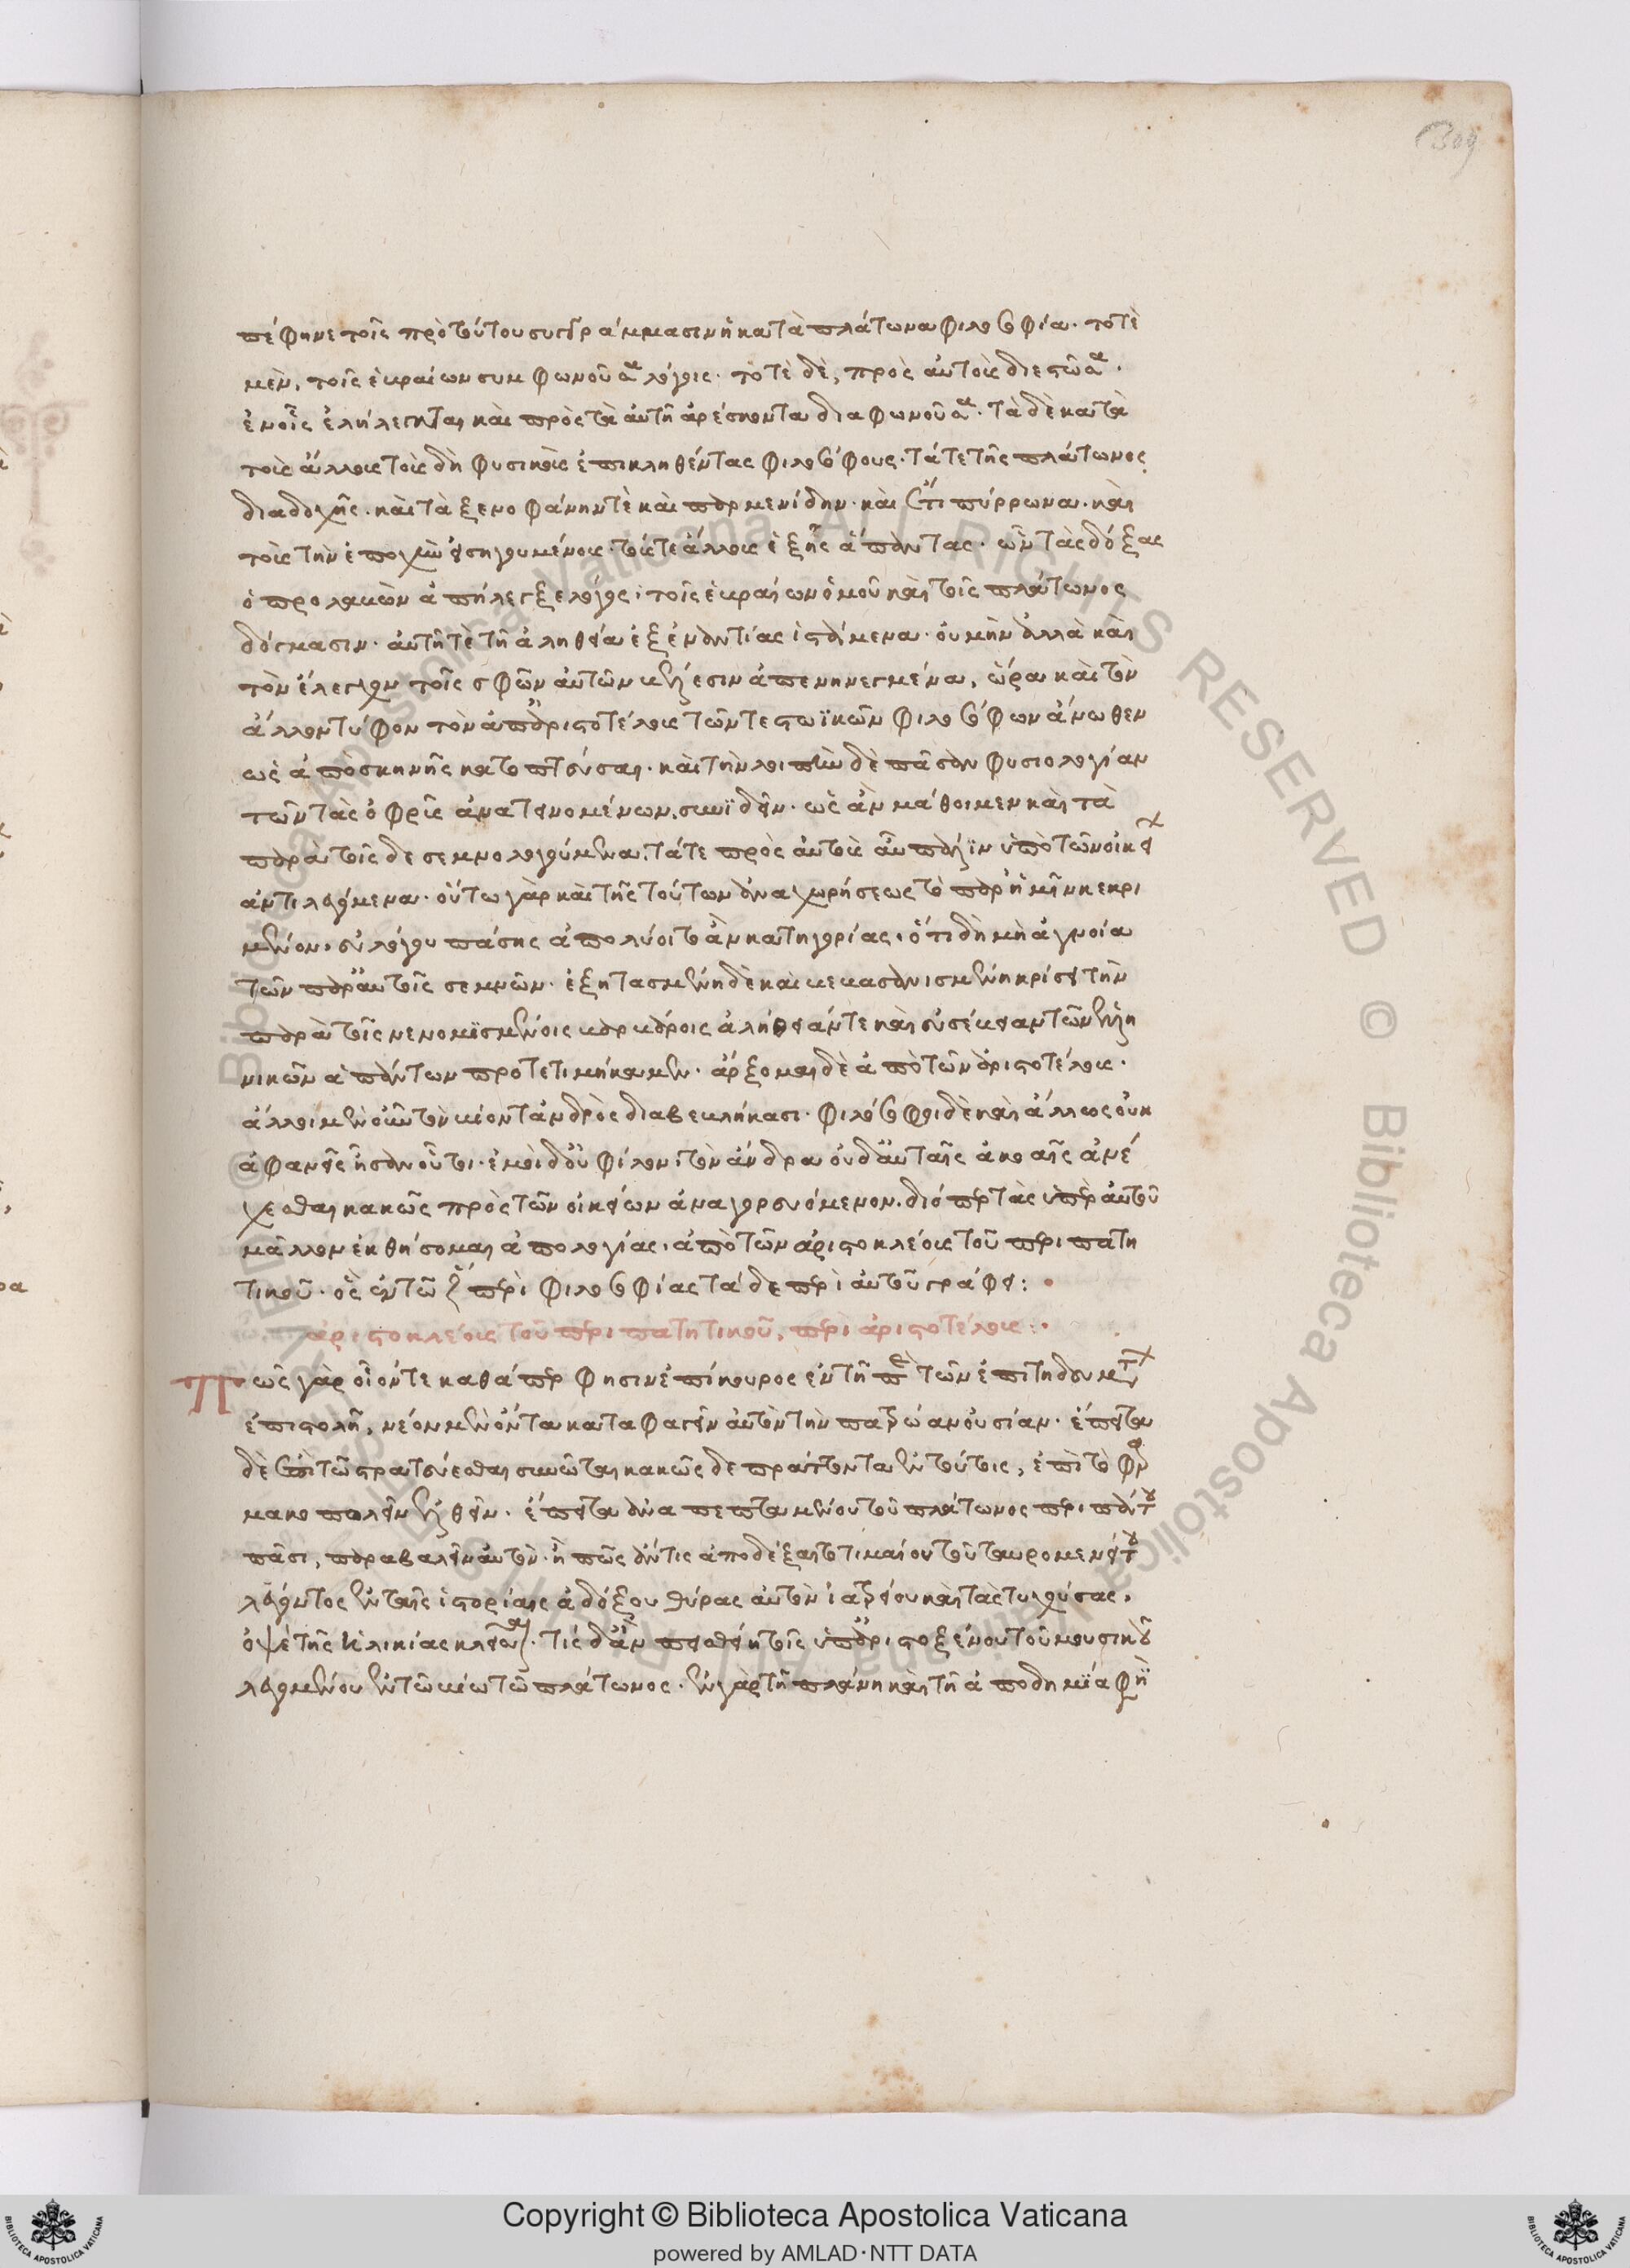 309
πέφηνε τοῖς πρὸ τούτου συγγράμμασιν ἡ κατὰ πλάτωνα φιλοσοφία. τοτὲ
μὲν, τοῖς ἑβραίων συμφωνοῦσα λόγοις. τοτὲ δὲ, πρὸς αὐτοὺς διεστῶσα.
ἐν οἷς ἐλήλεγκται καὶ πρὸς τὰ αὐτῇ ἀρέσκοντα διαφωνοῦσα. τὰ δὲ κατὰ
τοὺς ἄλλους τοὺς δὴ φυσικοὺς ἐπικληθέντας φιλοσόφους. τά τε τῆς πλάτωνος
διαδοχῆς. καὶ τὰ ξενοφάνην τὲ καὶ παρμενίδην. καὶ ἔτι πύρρωνα. καὶ
τοὺς τὴν ἐποχὴν εἰσηγουμένους. τούς τε ἄλλους ἑξῆς ἅπαντας. ὧν τὰς δόξας
ὁ προλαβὼν ἀπήλεγξε λόγος. τοῖς ἑβραίων ὁμοῦ καὶ τοῖς πλάτωνος
δόγμασιν. αὐτῇ τὲ τῇ ἀληθεία ἐξ ἐναντίας ἱστάμενα. οὐ μὴν ἀλλὰ καὶ
τὸν ἔλεγχον τοῖς σφῶν αὐτῶν βέλεσιν ἀπενηνεγμένα, ὥρα καὶ τὸν
ἄλλον τύφον τὸν ἀπ' ἀριστοτέλους τῶν τε στωϊκῶν φιλοσόφων ἄνωθεν
ὡς ἀπὸ σκηνῆς κατοπτεύσαι. καὶ τὴν λοιπὴν δὲ πᾶσαν φυσιολογίαν
τῶν τὰς ὀφρῦς ἀνατεινομένων, συνϊδεῖν. ὡς ἂν μάθοιμεν καὶ τὰ
παρὰ τοῖσδε σεμνολογούμενα. τά τε πρὸς αὐτοὺς αὖ πάλϊν ὑπὸ τῶν οἰκείων
ἀντιλεγόμενα. οὕτω γὰρ καὶ τῆς τούτων ἀναχωρήσεως τὸ παρ' ἡμῖν κεκρι
μένον, εὐλόγου πάσης ἀπολύοιτο ἂν κατηγορίας. ὅτι δὴ μὴ ἀγνοία
τῶν παρ' αὐτοῖς σεμνῶν. ἐξητασμένη δὲ καὶ βεβασανισμένη κρίσει τὴν
παρὰ τοῖς νενομϊσμένοις βαρβάροις ἀλήθειάν τε καὶ εὐσέβειαν τῶν ἑλλη
νικῶν ἁπάντων προτετιμήκαμεν. ἄρξομαι δὲ ἀπὸ τῶν ἀριστοτέλους.
ἄλλοι μὲν οὖν τὸν βίον τἀνδρὸς διαβεβλήκασι. φιλόσοφοι δὲ καὶ ἄλλως οὐκ
ἀφανεῖς ἦσαν οὗτοι. ἐμοὶ δ' οὐ φίλον, τὸν ἄνδρα οὐδ' αὐταῖς ἀκοαῖς ἀνέ
χεσθαι κακῶς πρὸς τῶν οἰκείων ἀναγορευόμενον. διόπερ τὰς ὑπὲρ αὐτοῦ
μᾶλλον ἐκθήσομαι ἀπολογίας. ἀπὸ τῶν ἀριστοκλέους τοῦ περιπατη
τικοῦ. ὃς ἐν τῷ ζ' περὶ φιλοσοφίας τάδε περὶ αὐτοῦ γράφει:
ἀριστοκλέους τοῦ περιπατητικοῦ, περὶ ἀριστοτέλους:
πῶς γὰρ οἷόν τε καθάπερ φησὶν ἐπίκουρος ἐν τῇ περὶ τῶν ἐπιτηδευμάτων
ἐπιστολῇ, νέον μὲν ὄντα καταφαγεῖν αὐτὸν τὴν πατρώαν οὐσίαν. ἔπειτα
δὲ ἐπὶ τῷ στρατεύεσθαι συνῶσθαι κακῶς δὲ πράττοντα ἐν τούτοις, ἐπὶ τὸ φαρ
μακοπωλεῖν ἐλθεῖν. ἔπειτα ἀναπεπταμένου τοῦ πλάτωνος περιπάτου
πᾶσι, παραβαλεῖν αὐτόν. ἢ πῶς ἄν τις ἀποδέξαιτο τιμαίου τοῦ ταυρομενείτου
λέγοντος ἐν ταῖς ἱστορίαις ἀδόξου θύρας αὐτὸν ἰατρείου καὶ τὰς τυχούσας.
ὀψὲ τῆς ἡλικίας κλεῖσαι. τίς δ' ἂν πεισθείη τοῖς ὑπ' ἀριστοξένου τοῦ μουσικοῦ
λεγομένου ἐν τῷ βίω τοῦ πλάτωνος. ἐν γὰρ τῇ πλάνη καὶ τῇ ἀποδημϊα φησὶ